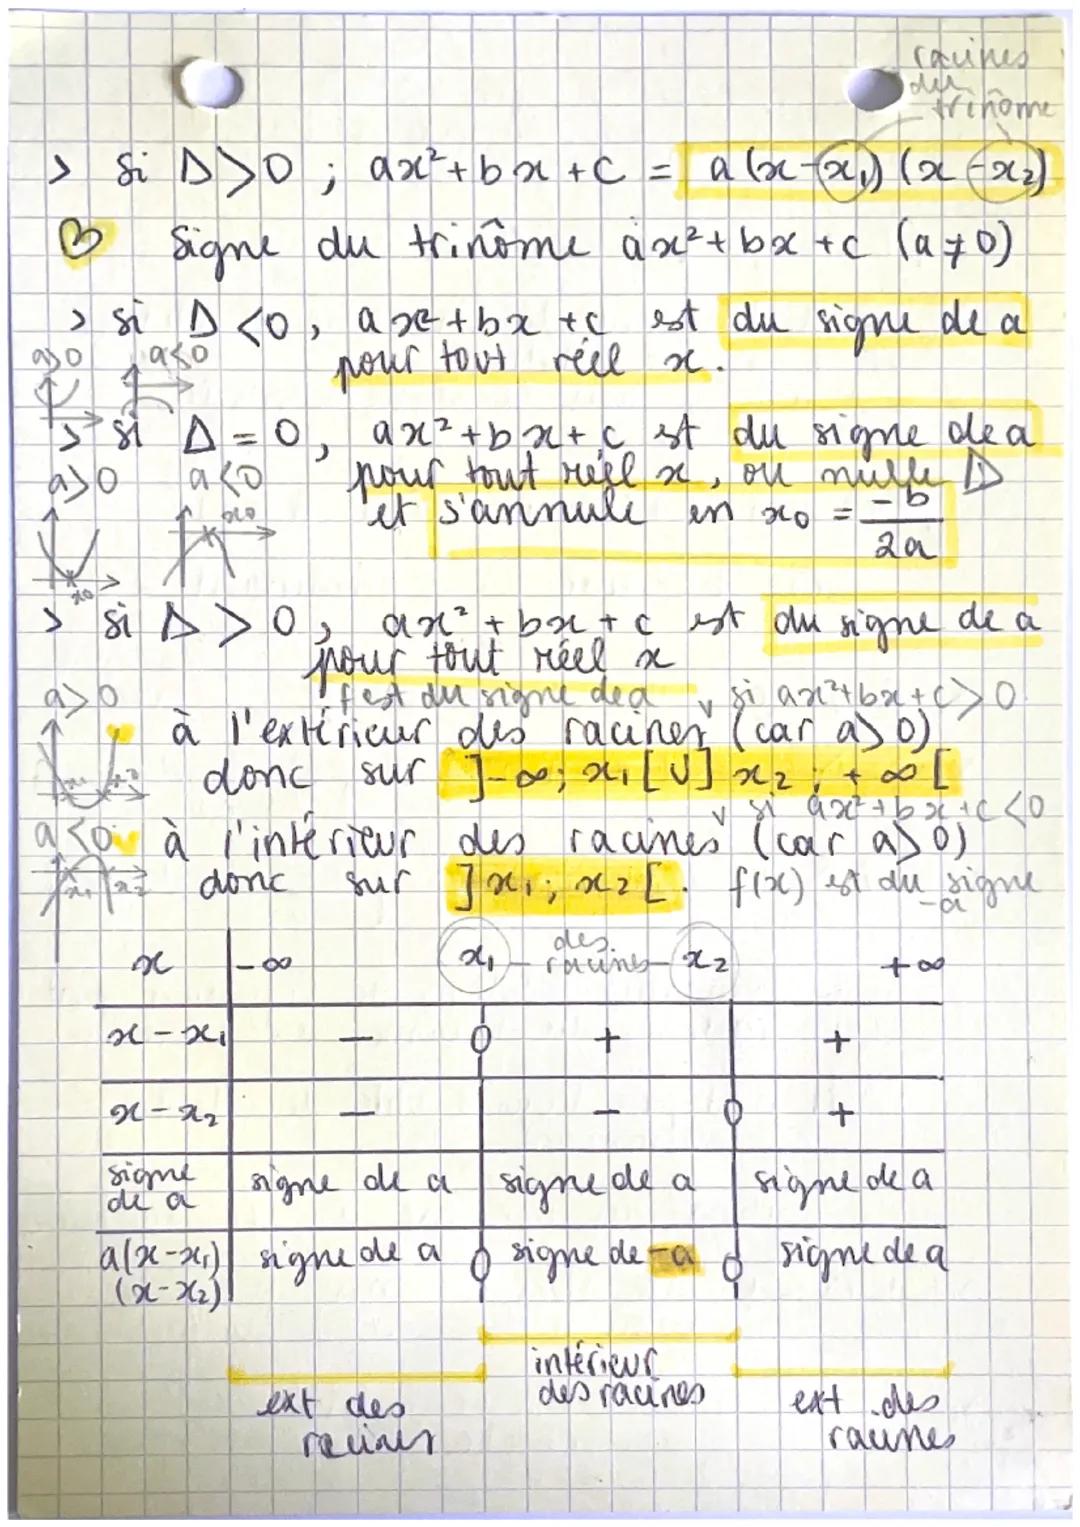 racines
du
trinôme
> si Δ>0 ; ax²+bx+c = a(x-x₁)(x-x₂)
B Signe du trinôme ax²+bx+c (a≠0)
> si Δ<0, ax²+bx+c est du signe de a
a>0 a<0 pour tout réel x.
> si Δ=0, ax²+bx+c est du signe de a
a>0 a<0 pour tout réel x, ou nulle
x₀ et s'annule en x₀ = -b/2a
x₀
> si Δ>0, ax²+bx+c est du signe de a
pour tout réel x
a>0 f est du signe de a si ax²+bx+c>0
à l'extérieur des racines (car a>0)
donc sur ]-∞; x₁[ U ] x₂ ; +∞[
x₁ x₂
si ax²+bx+c<0
a<0 à l'intérieur des racines (car a>0)
x₁ x₂ donc sur ]x₁; x₂[. f(x) est du signe
-a
x -∞ x₁ des racines x₂ +∞
x-x₁ - 0 + +
x-x₂ - - 0 +
signe de a signe de a signe de a signe de a
a(x-x₁) signe de a 0 signe de -a 0 signe de a
(x-x₂)
intérieur
des racines
ext des
racines
ext des
racines